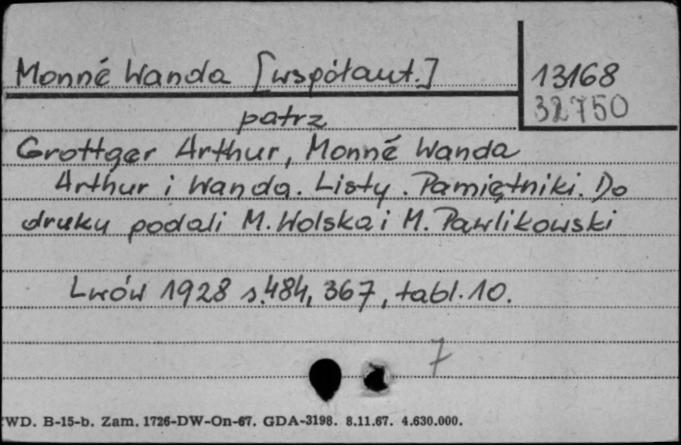 Monné Wanda [współaut.]
13168
32750
patrz
Grottger Arthur, Monné Wanda
Arthur i Wanda. Listy. Pamiętniki. Do
druku podali M. Wolska i M. Pawlikowski
Lwów 1928 s. 484, 367, tabl. 10.
7
WD. B-15-b. Zam. 1726-DW-On-67. GDA-3198. 8.11.67. 4.630.000.